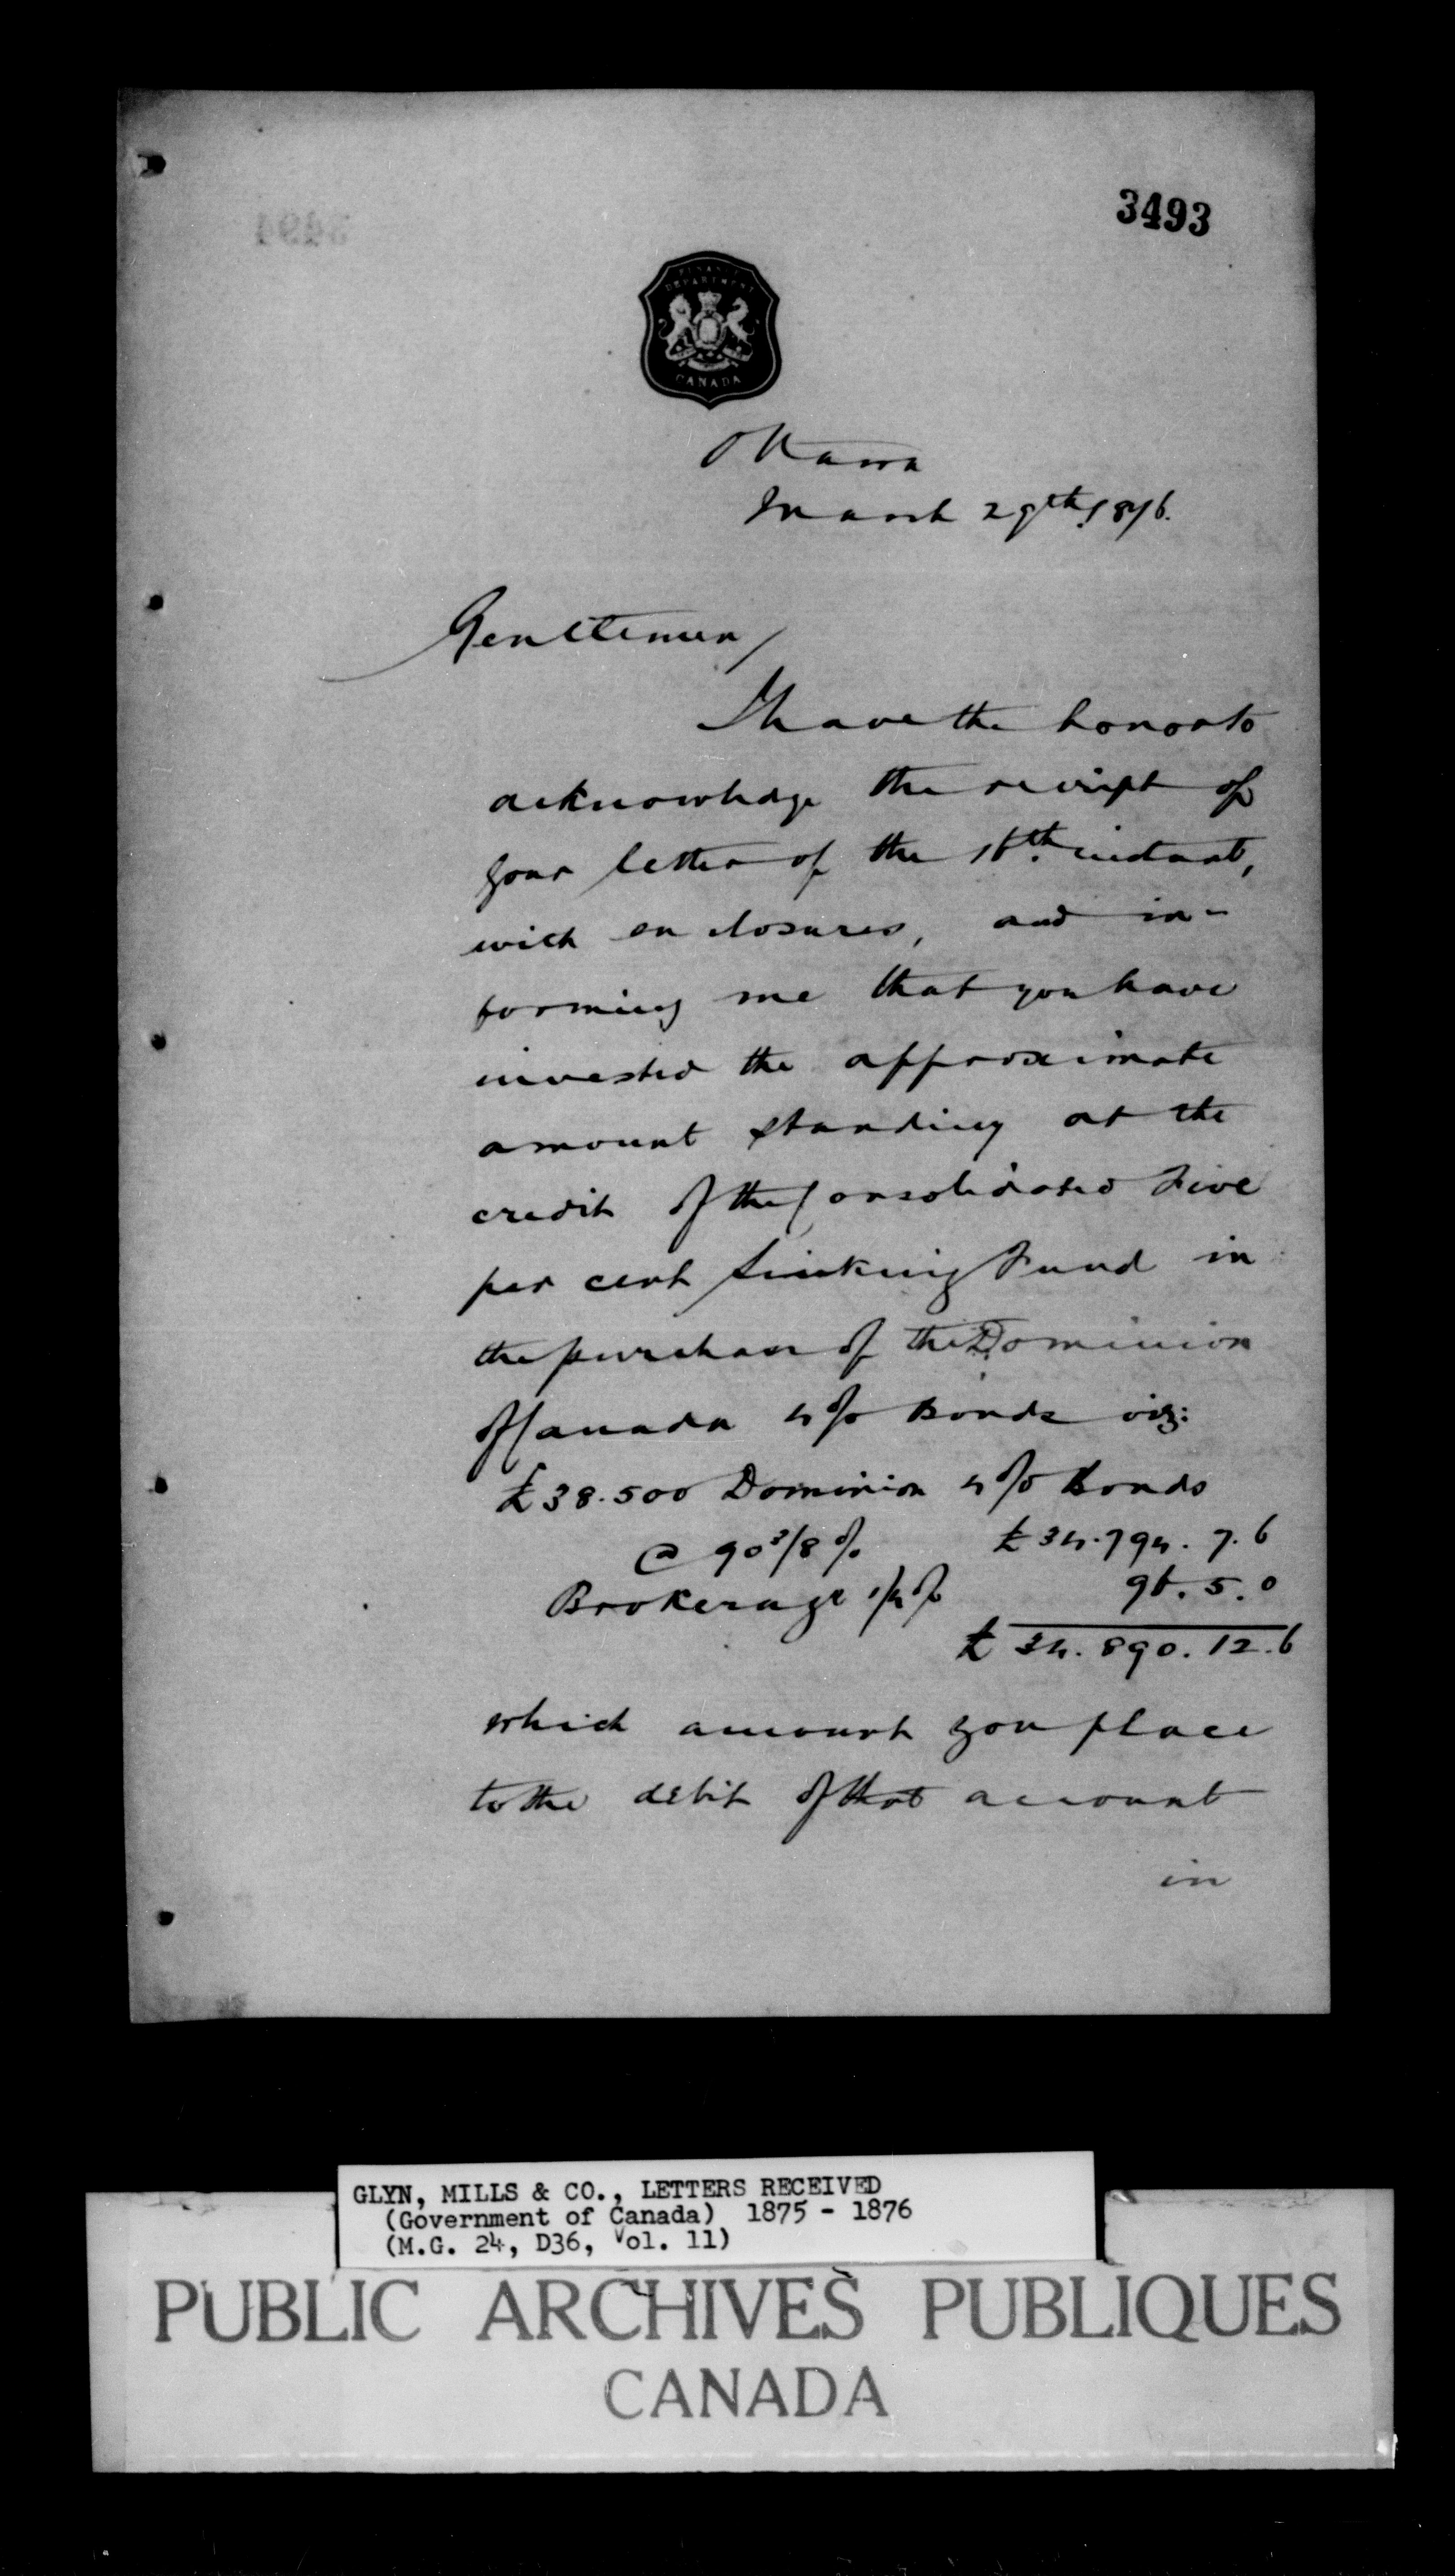 3493
3494
FINANCE
DEPARTMENT
CANADA
Ottawa
March 29th, 1876.
Gentlemen,
I have the honor to
acknowledge the receipt of
your letter of the 16th. instant,
with enclosures, and in-
forming me that you have
invested the approximate
amount standing at the
credit of the Consolidated Five
per cent Sinking Fund in
the purchase of the Dominion
of Canada 4% Bonds viz:
£38.500 Dominion 4% Bonds
@ 90 3/8 % £34.794. 7. 6
Brokerage 1/4 % 96. 5. 0
£ 34. 890. 12. 6
which amount you place
to the debit of that account
in
GLYN, MILLS & CO., LETTERS RECEIVED
(Government of Canada) 1875 - 1876
(M.G. 24, D36, Vol. 11)
PUBLIC ARCHIVES PUBLIQUES
CANADA